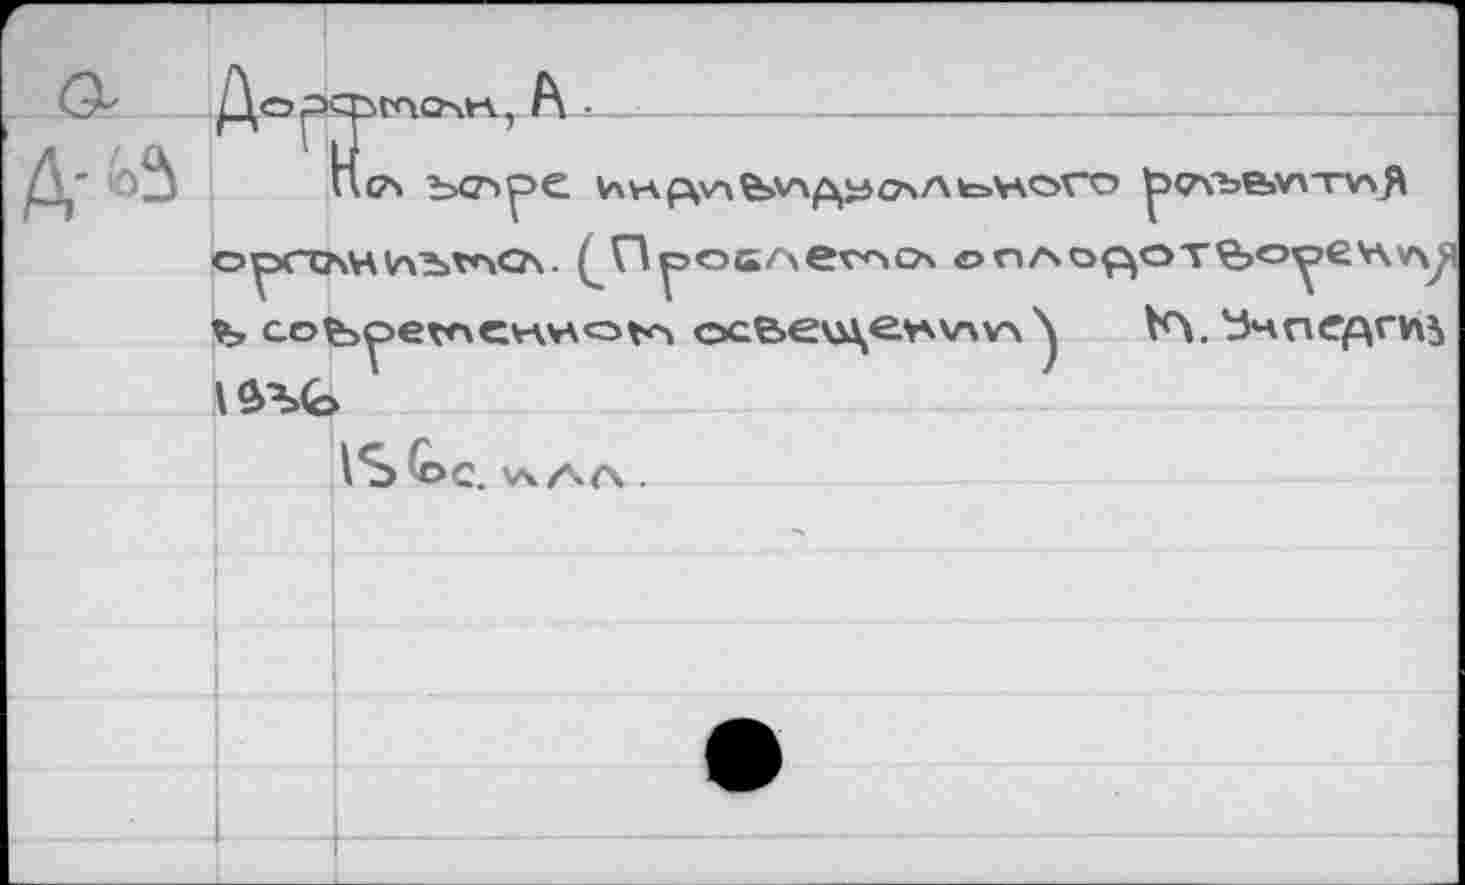 а Дорфман, А.
Д-63 На заре индивидуального развития
организма. (Проблема оплодотворения
в современном освещении) М. Учпедгиз
1936
156 с. илл.